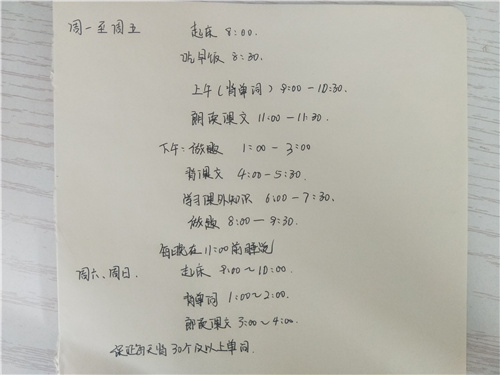 周一至周五 起床 8:00.
吃早饭 8:30.
上午(背单词) 9:00-10:30.
朗读课文 11:00-11:30.
下午:做题 1:00-3:00
背课文 4:00-5:30.
学习课外知识 6:00-7:30.
做题 8:00-9:30.
每晚在11:00前睡觉
周六、周日. 起床 9:00~10:00.
背单词 1:00~2:00.
朗读课文 3:00~4:00.
保证每天背30个及以上单词.